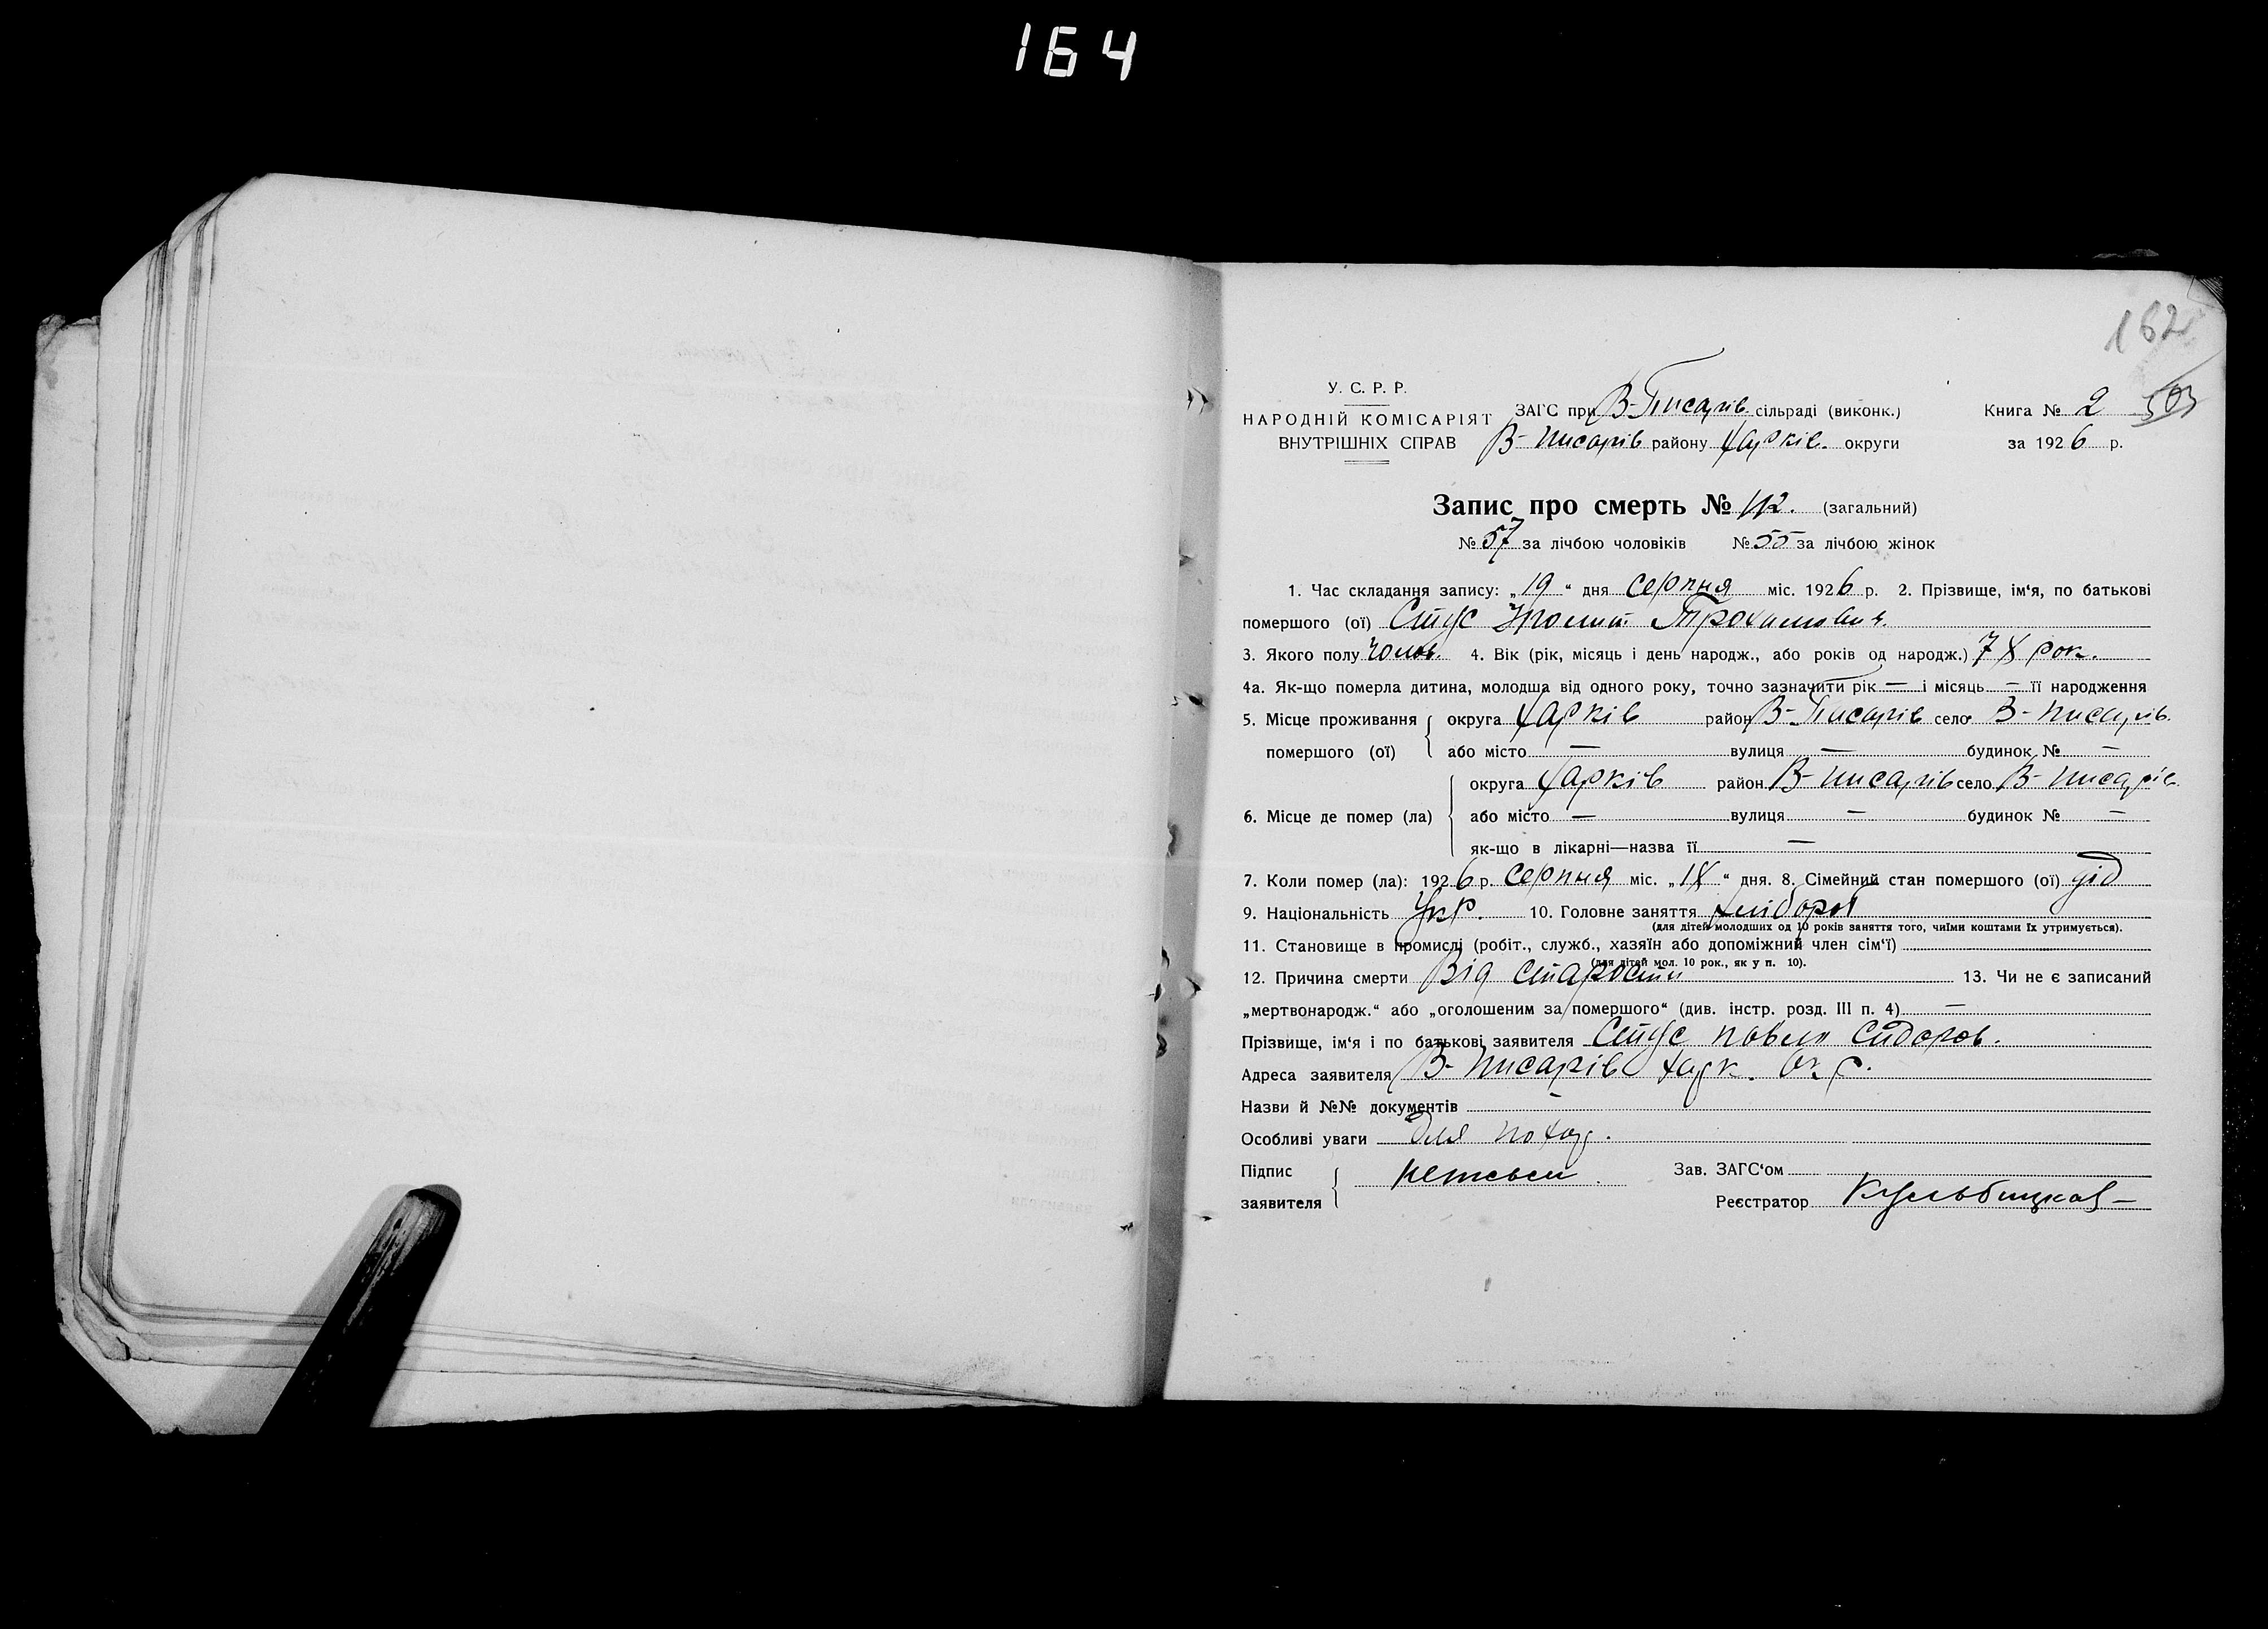 164
162
У. С. Р. Р.
НАРОДНІЙ КОМІСАРІЯТ
ВНУТРІШНІХ СПРАВ
ЗАГС при В-Писарів. сільраді (виконк.)
В-Писарів району Харків. округи
Книга № 2
за 1926 р.
Запис про смерть № 112. (загальний)
№ 57 за лічбою чоловіків № 55 за лічбою жінок
1. Час складання запису: „19“ дня серпня міс. 1926 р. 2. Прізвище, ім‘я, по батькові
помершого (ої) Стус Трохимович.
3. Якого полу Чолов. 4. Вік (рік, місяць і день народж., або років од народж.) 78 рок.
4а. Як-що померла дитина, молодша від одного року, точно зазначити рік — і місяць — її народження
5. Місце проживання помершого (ої) округа Харків район В-Писарів село В-Писарів.
або місто — вулиця — будинок № —
6. Місце де помер (ла) округа Харків район В-Писарів село В-Писарів
або місто — вулиця — будинок № —
як-що в лікарні—назва її —
7. Коли помер (ла): 1926 р. серпня міс. „18“ дня. 8. Сімейний стан помершого (ої) дід
9. Національність Укр. 10. Головне заняття хлібороб
(для дітей молодших од 10 років заняття того, чиїми коштами їх утримується).
11. Становище в промислі (робіт., служб., хазяїн або допоміжний член сім‘ї)
(для дітей мол. 10 рок., як у п. 10).
12. Причина смерти Від старости 13. Чи не є записаний
„мертвонародж.“ або „оголошеним за помершого“ (див. інстр. розд. III п. 4) —
Прізвище, ім‘я і по батькові заявителя Стус Павло Сидоров.
Адреса заявителя В-Писарів Харк. Окр.
Назви й №№ документів —
Особливі уваги Для поход.
Підпис
заявителя неписьм.
Зав. ЗАГС‘ом
Реєстратор